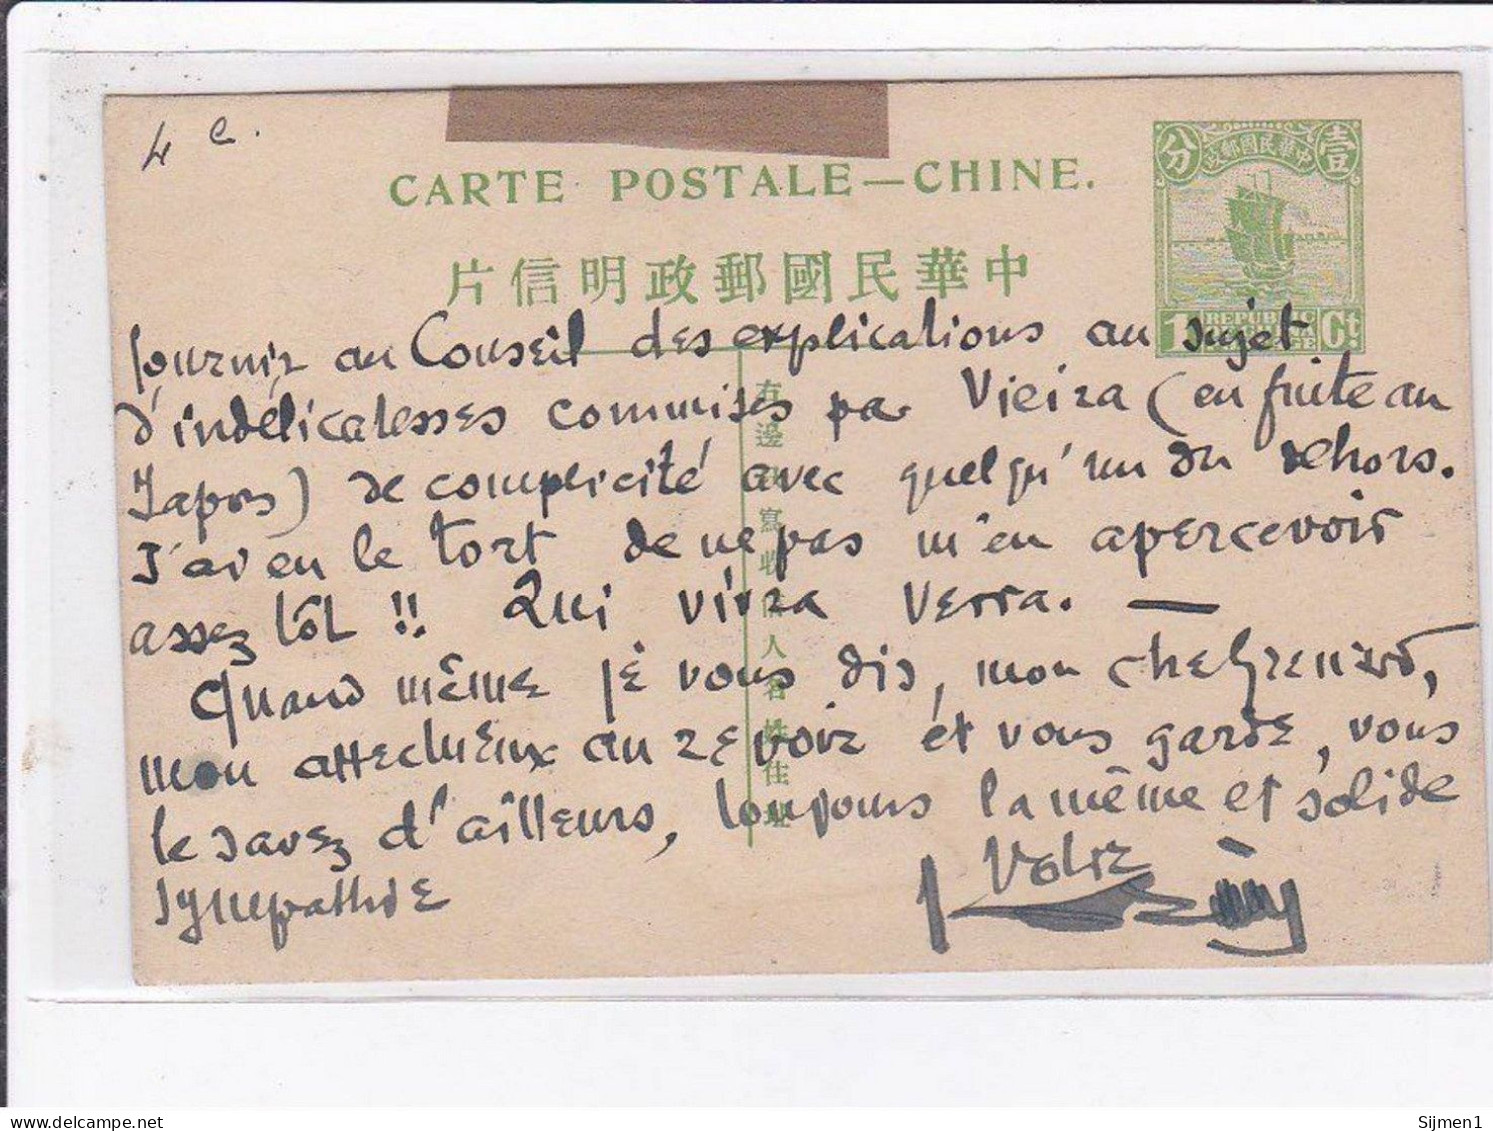 4 e.
CARTE POSTALE—CHINE.
片信明政郵國民華中
分 政郵國民華中 壹
1 REPUBLIC Ct.
右邊 寫收 人名姓住址
fournir au Conseil des explications au sujet
d'indélicatesses commises par Vieira (en fuite au
Japon) de complicité avec quelqu'un du dehors.
J'ai eu le tort de ne pas m'en apercevoir
assez tôt !! Qui vivra verra. —
Quand même je vous dis, mon cher Grenard,
mon affectueux au revoir et vous garde, vous
le savez d'ailleurs, toujours la même et solide
sympathie
Votre
Sijmen1